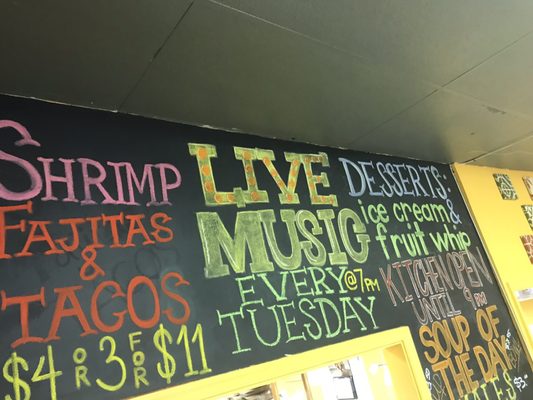 SHRIMP
FAJITAS
&
TACOS
$4 OR 3 FOR $11
LIVE
MUSIC
EVERY @ 7PM
TUESDAY
DESSERTS:
ice cream &
fruit whip
KITCHEN OPEN
UNTIL 9 PM
SOUP OF
THE DAY